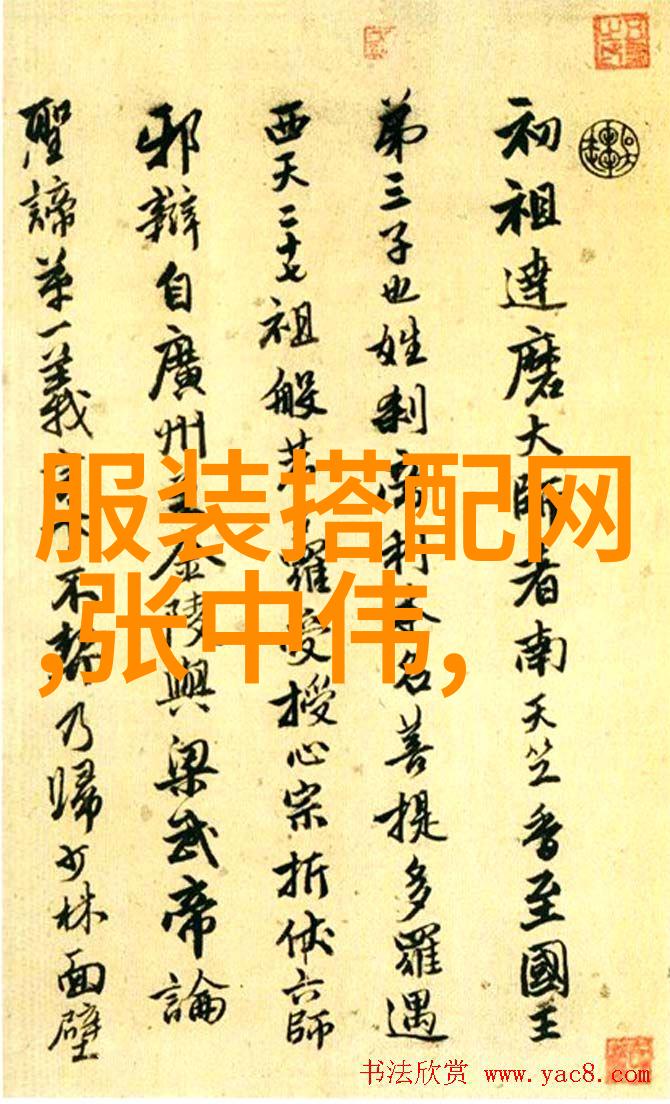 初祖達磨大師者南天竺香至國王
弟三子也姓刹帝利本名菩提多羅遇
西天二十七祖般若羅受授心宗折伏六師
邪辯自廣州至金陵與梁武帝論
聖諦苐一義不契乃歸少林面壁
服装搭配网
,张中伟,
书法欣赏 www.yac8.com